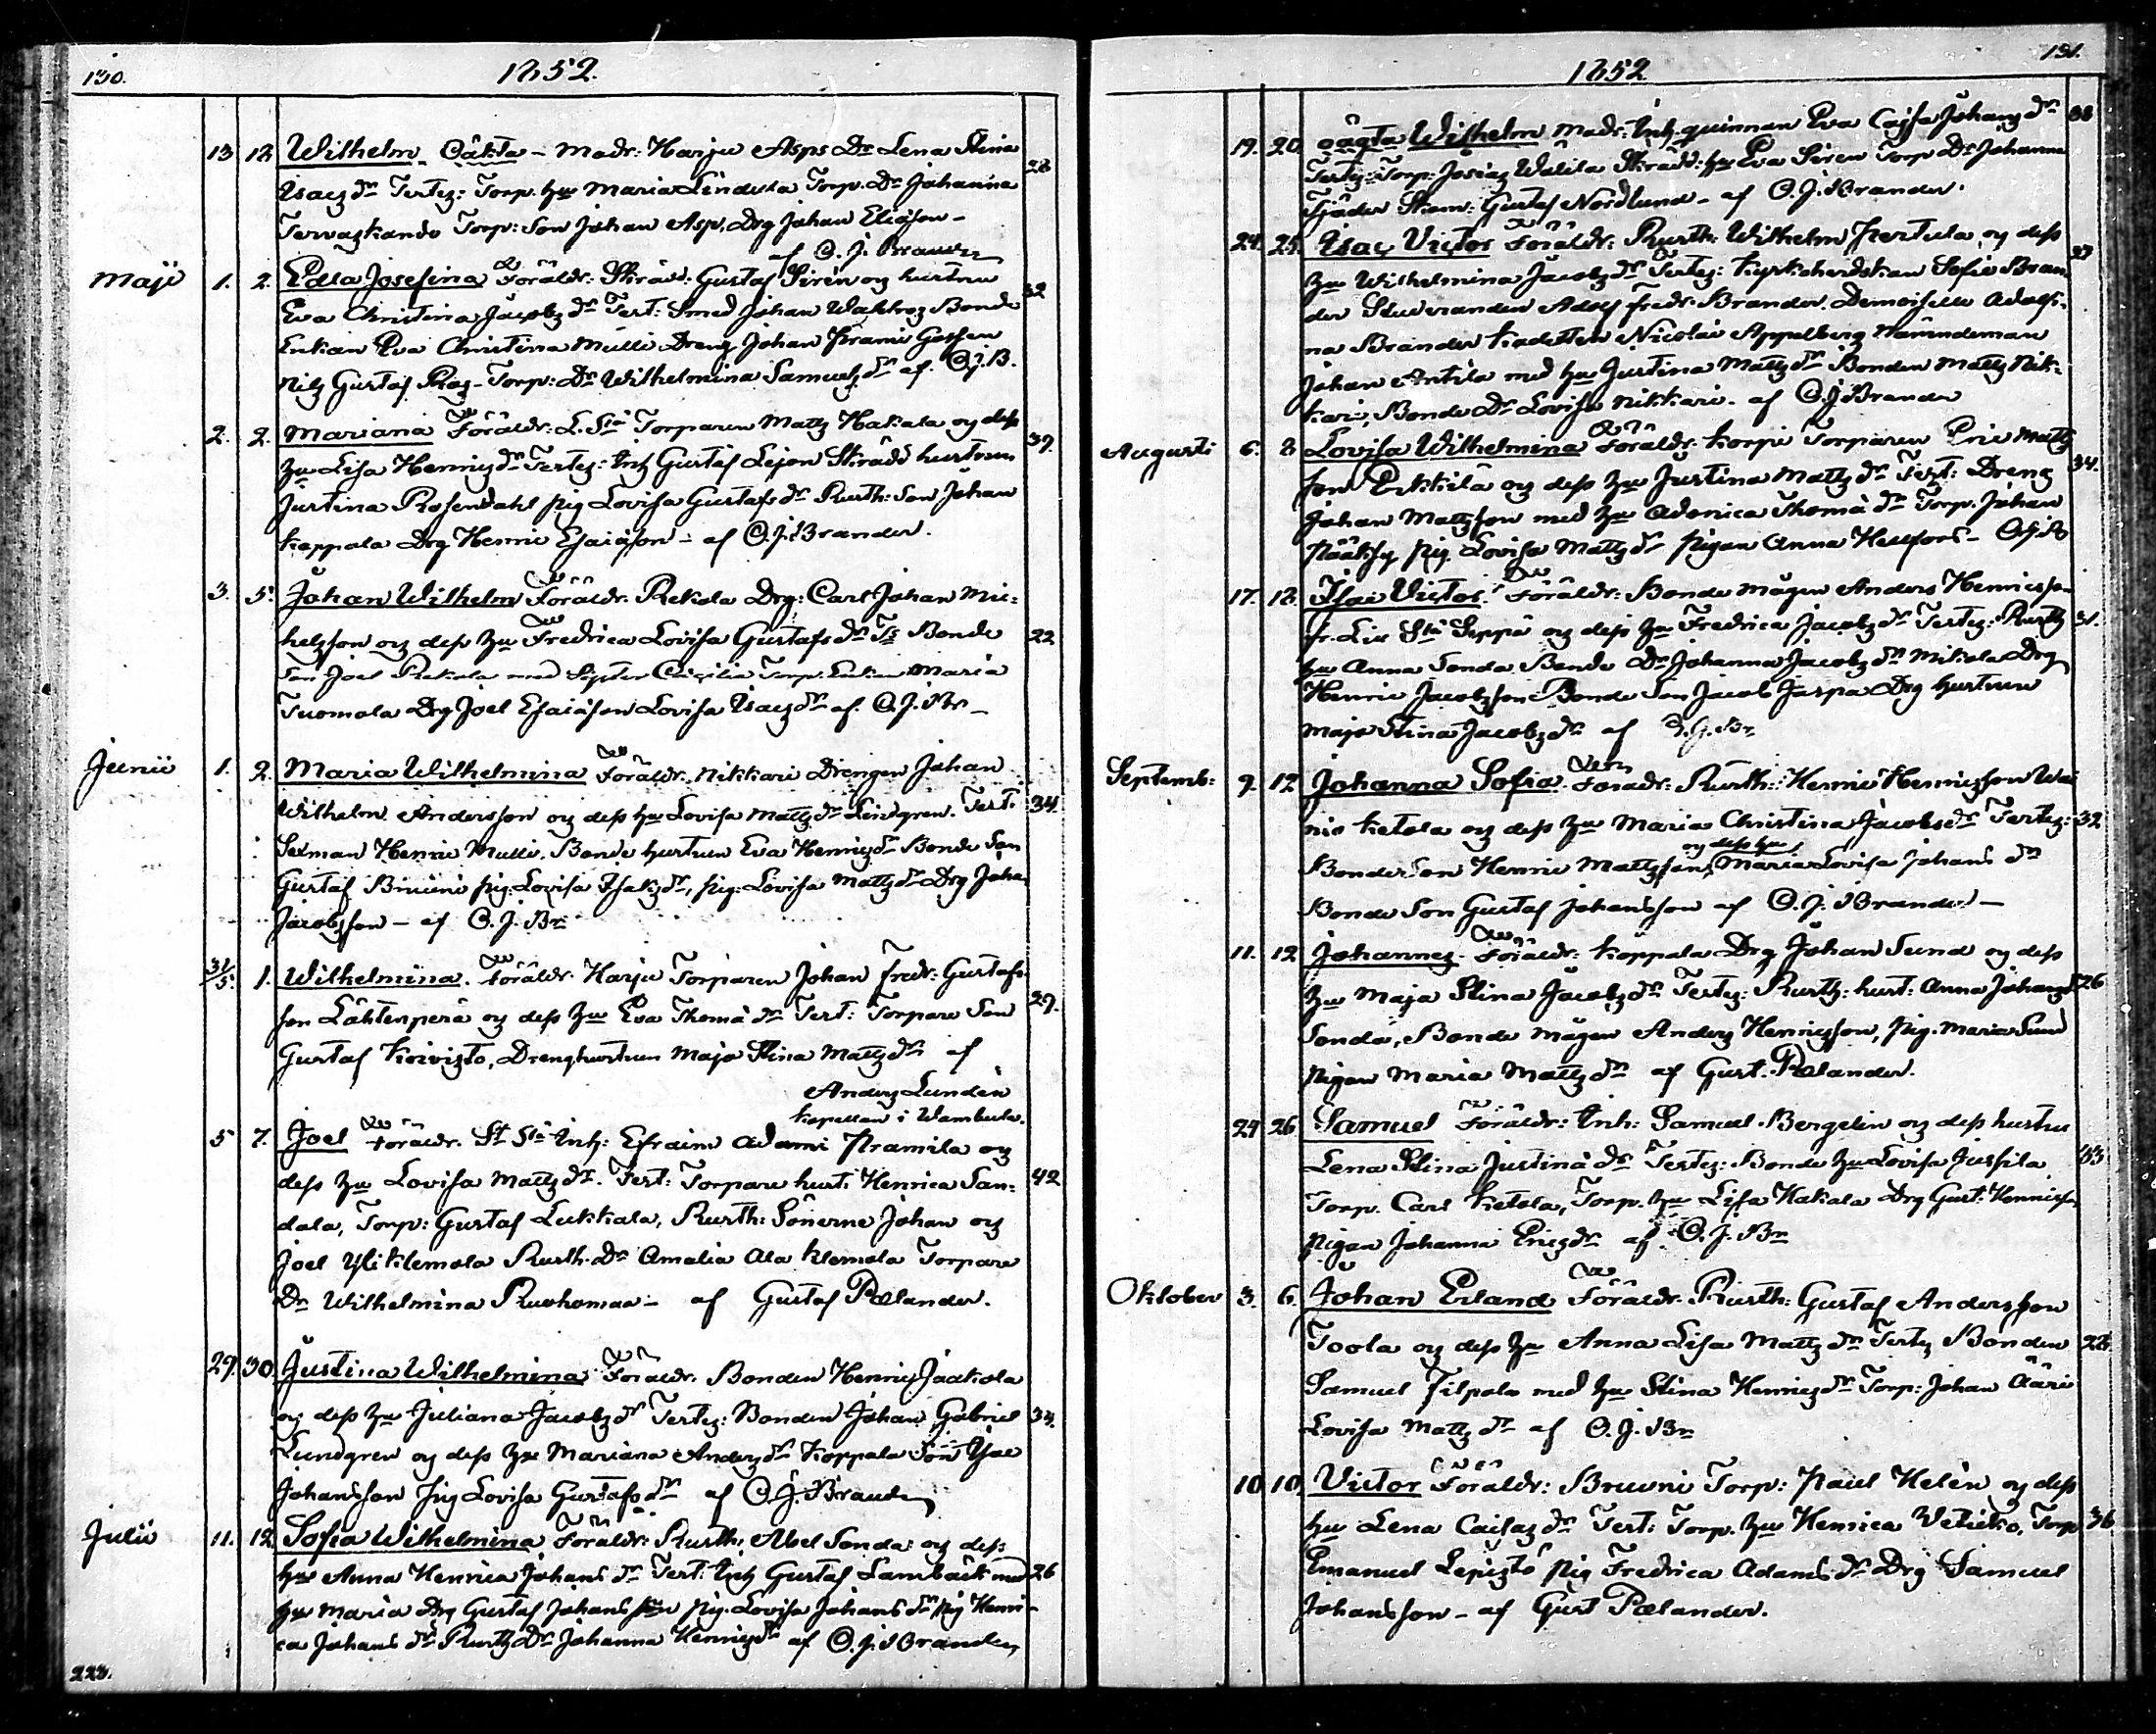 130.
1852.
13 12 Wilhelm Oäkta - Modr: Harju Asps Dr Lena Stina 28
Isacsdr Testes: Torp. Hu Maria Lindula Torp. Dr Johanna
Torp: Son Johan Asp, Drg Johan Eliasson -
af C. J. Brander
Maji 1. 2. Edla Josefina Föräldr: Skräd. Gustaf Sirén og hustrun
Eva Christina Jacobsdr Test: Smed Johan Bonde 32
Enkan Eva Christina Mulli Dreng Johan Gossen
Nils Gustaf Torp: Dr Wilhelmina Samuelsdr af C.J.B.
2. 2. Mariana Föräldr: L. Sti Torparen Matts Hakala og dess 37.
Hu Lisa Henricsdr Testes: Inh Gustaf Lejon Skrädd hustrun
Justina Rosendahl Pig Lovisa Gustafsdr Rusth: Son Johan
Koppala Drg Henric Esaiasson - af C. J. Brander.
3. 5. Johan Wilhelm Föräldr. Rekola Drg: Carl Johan Mic-
helsson og dess Hu Fredrica Lovisa Gustafsdr Ts Bonde 22
Son Joel Rekola med Syster Cecilia Torp. Enkan Maria
Tuomola Drg Joel Esaiasson Lovisa Isacsdr af C. J. Br -
Junii 1. 2. Maria Wilhelmina Föräldr. Nikkari Drengen Johan
Wilhelm Andersson og dess Hu Lovisa Mattsdr Lindgren. Test. 34.
Sexman Henric Mulli. Bonde hustrun Eva Henricsdr Bonde Son
Gustaf Pig: Lovisa Isaksdr, Pig: Lovisa Mattsdr Drg Johan
Jacobsson - af C. J. Br
31/5. 1. Wilhelmina. Föräldr. Harju Torparen Johan Fredr: Gustafs-
son Lähtenperä og dess Hu Eva Thomä dr Test: Torpare Son 27.
Gustaf Koivisto, Drenghustrun Maja Stina Mattsdr af
Anders Lundén
Kapellan i Wambula.
5 7. Joel Föräldr. St Sti Inh: Efraim Adami Pramila og
dess Hu Lovisa Mattsdr. Test: Torpare hust. Henrica San- 42
dala, Torp: Gustaf Lukkala, Rusth: Sönerne Johan og
Joel Yliklemola Rusth. Dr Amalia Ala Klemola Torpare
Dr Wilhelmina Ruohomaa - af Gustaf Polander.
29. 30. Justina Wilhelmina Föräldr. Bonden Henric Jaakola
og dess Hu Juliana Jacobsdr Testes: Bonden Johan Gabriel 34.
Lundgren og dess Hu Mariana Andersdr Koppala Son Isac
Johansson Pig Lovisa Gustafsdr af C. J. Brander
Julii 11. 12. Sofia Wilhelmina Föräldr: Rusth. Abel Sonda og dess
Hu Anna Henrica Johansdr Test: Inh Gustaf Lambäck med 26
Hu Maria Drg Gustaf Johansson Pig. Lovisa Johansdr Pig Henri-
ca Johansdr Rusth Dr Johanna Henricsdr af C. J. Brander
223.
131.
1852
19. 20. oägta Wilhelm Modr: Inh. quinnan Eva Cajsa Johansdr 38
Testes: Torp: Josias Walila Skrädd: Hu Eva Siren Torp Dr Johanna
Tjäder Skom: Gustaf Nordlund - af C. J. Brander.
24. 25. Isac Victor Föräldr: Rusth: Wilhelm Pertula og dess 37
Hu Wilhelmina Jacobsdr Testes: Kyrkoherdskan Sofie Bran-
der Studeranden Adolf Fredr. Brander. Demoiselle Adolfi-
na Brander Kadetten Nicolai Appelberg Nämndeman
Johan Antila med Hu Justina Mattsdr Bonden Matts Nik-
kari, Bonde Dr Lovisa Nikkari. af C J Brander
Augusti 6. 8 Lovisa Wilhelmina Föräldr. Korpi Torparen Eric Matts
son Erkkilä og dess Hu Justina Mattsdr Test: Dreng 34.
Johan Mattsson med Hu Thomä dr Torp. Johan
Pig Lovisa Mattsdr Pigan Anna Hellfors - C. J. B
17. 18. Isac Victor. Föräldr: Bonde Mågen Anders Henricsson
fr. Seppä og dess Hu Fredrica Jacobsdr Testes: Rusth 31.
Hu Anna Sonda Bonde Dr Johanna Jacobsdr Mikola Drg
Henric Jacobsson Bonde Son Jacob Jaspa Drg hustrun
Maja Stina Jacobsdr af C. J. Br
Septemb: 9. 12 Johanna Sofia. Föräldr: Rusth: Henric Henricsson Wai
nio Ketola og dess Hu Maria Christina Jacobsdr Testes: 32
Bonde Son Henric Mattsson, og dess Hu Maria Lovisa Johans dr
Bonde Son Gustaf Johansson af C. J. Brander -
11. 12 Johannes. Föräldr: Koppala Drg Johan Sund og dess
Hu Maja Stina Jacobsdr Testes: Rusth: hust: Anna Johansdr 26
Sonda, Bonde Mågen Anders Henricsson, Pig. Maria Sund
Pigan Maria Mattsdr af Gust. Polander.
24 26 Samuel Föräldr: Inh: Samuel Bergelin og dess hustru
Lena Stina Justinä dr Testes: Bonde Hu Lovisa Jussila 33
Torp. Carl Ketola, Torp. Hu Lisa Hakala Drg Gust: Henricss
Pigan Johanna Ericsdr af C. J. Br
Oktober 3. 6. Johan Erland Föräldr. Rusth: Gustaf Andersson
Toola og dess Hu Anna Lisa Mattsdr Testes Bonden 28.
Samuel Filpola med Hu Stina Henricsdr Torp: Johan Ääri
Lovisa Mattsdr af C. J. Br
10 10. Victor Föräldr: Torp: Paul Helén og dess
Hu Lena Cajsa dr Test: Torp. Hu Henrica Torp 36
Emanuel Lepistö Pig Fredrica Adamsdr Drg Samuel
Johansson - af Gust Polander.